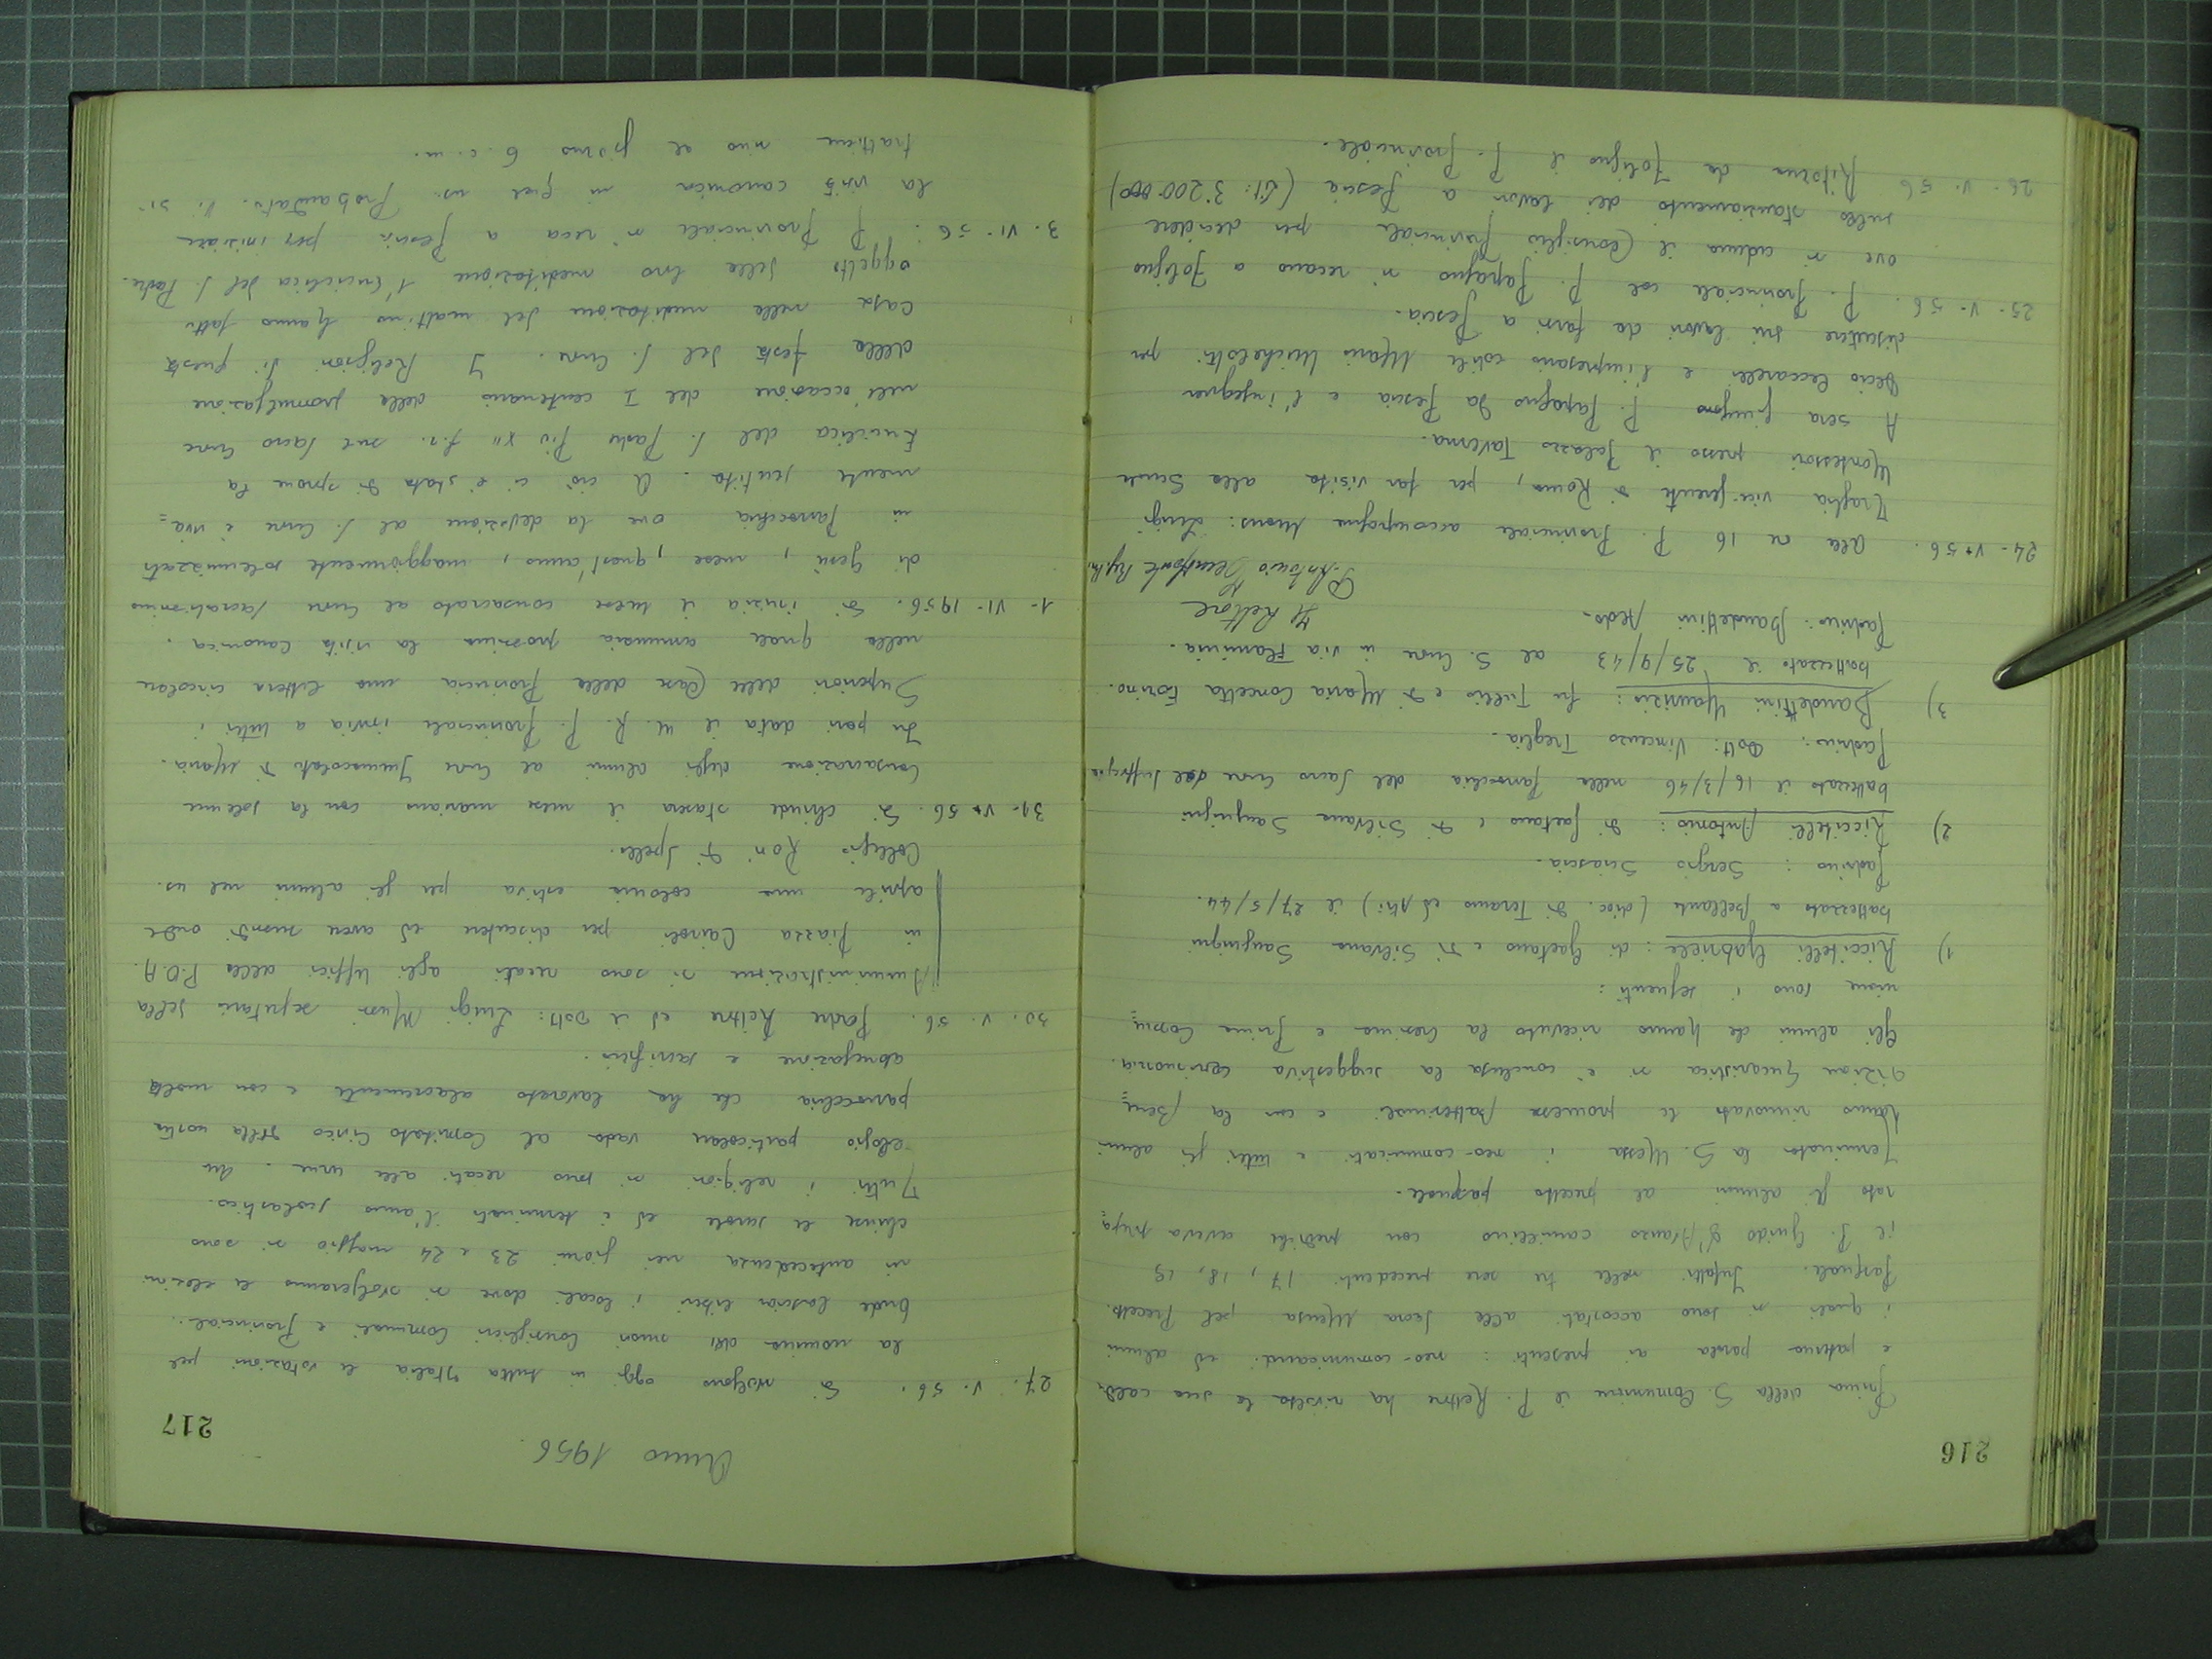 216
Prima della S. Comunione il P. Rettore ha rivolto la sua calda
e paterna parola ai presenti: neo-comunicandi ed alunni
i quali si sono accostati alla Sacra Mensa pel Precetto
Pasquale. Infatti nelle tre sere precedenti 17, 18, 19
il P. Guido D'Manzo camilliano con prediche aveva prepa=
rato gli alunni al precetto pasquale.
Terminata la S. Messa i neo-comunicati e tutti gli alunni
hanno rinnovato le promesse battesimali e con la Bene=
dizione Eucaristica si è conclusa la suggestiva cerimonia.
Gli alunni che hanno ricevuto la Cresima e Prima Comu=
nione sono i seguenti:
1) Riccitelli Gabriele: di Gaetano e di Silvana Sanguigni
battezzato a Bellante (dioc. di Teramo ed Atri) il 27/5/44.
Padrino: Sergio Sciascia.
2) Riccitelli Antonio: di Gaetano e di Silvana Sanguigni
battezzato il 16/3/46 nella Parrocchia del Sacro Cuore del Suffragio
Padrino: Dott: Vincenzo Treglia.
3) Bandettini Maurizio: fu Tullio e di Maria Concetta Esrino.
battezzato il 25/9/43 al S. Cuore in via Flaminia.
Padrino: Bandettini Aldo.
Il Rettore
P. Antonio
24-V-56. Alle ore 16 P. Provinciale accompagna Mons: Luigi
Traglia vice-gerente di Roma, per far visita alla Scuola
Montessori presso il Palazzo Taverna.
A sera giungono P. Papagno da Pescia e l'ingegner
Decio Ceccarelli e l'impresario edile Mario Michelotti per
discutere sui lavori da farsi a Pescia.
25-V-56. P. Provinciale col P. Papagno si recano a Foligno
ove si aduna il Consiglio Provinciale per decidere
sullo stanziamento dei lavori a Pescia (Lit: 3.200.000)
26-V-56 Ritorna da Foligno il P. Provinciale.
217
Anno 1956.
27-V-56. Si svolgono oggi in tutta Italia le votazioni per
la nomina dei nuovi Consiglieri Comunali e Provinciali.
Onde lasciar liberi i locali dove si svolgeranno le elezioni
in antecedenza nei giorni 23 e 24 maggio si sono
chiuse le scuole ed è terminato l'anno scolastico.
Tutti i religiosi si sono recati alle urne. Un
elogio particolare vada al Comitato Civico della nostra
parrocchia che ha lavorato alacremente e con molta
abnegazione e sacrificio.
30-V-56. Padre Rettore ed il Dott: Luigi Musi segretario della
Amministrazione si sono recati agli Uffici della P.O.A.
in Piazza Cairoli per discutere ed avere sussidi onde
aprire una colonia estiva per gli alunni nel ns.
Collegio Rosi di Spello.
31-V-56. Si chiude stasera il mese mariano con la solenne
Consacrazione degli alunni al Cuore Immacolato di Maria.
In pari data il M. R. P. Provinciale invia a tutti i
Superiori delle Case della Provincia una lettera circolare
nella quale annunzia prossima la visita canonica.
1-VI-1956. Si inizia il mese consacrato al Cuore Sacratissimo
di Gesù, mese, quest'anno, maggiormente solennizzato
in Parrocchia ove la devozione al S. Cuore è viva=
mente sentita. A ciò ci è stata di sprone la
Enciclica del S. Padre Pio XII f.r. sul Sacro Cuore
nell'occasione del I centenario della promulgazione
della festa del S. Cuore. I Religiosi di questa
Casa nella meditazione del mattino hanno fatto
oggetto della loro meditazione l'Enciclica del S. Padre.
3-VI-56. P. Provinciale si reca a Pescia per iniziare
la visita canonica in quel ns. Probandato. Vi si
trattiene sino al giorno 6 c. m.